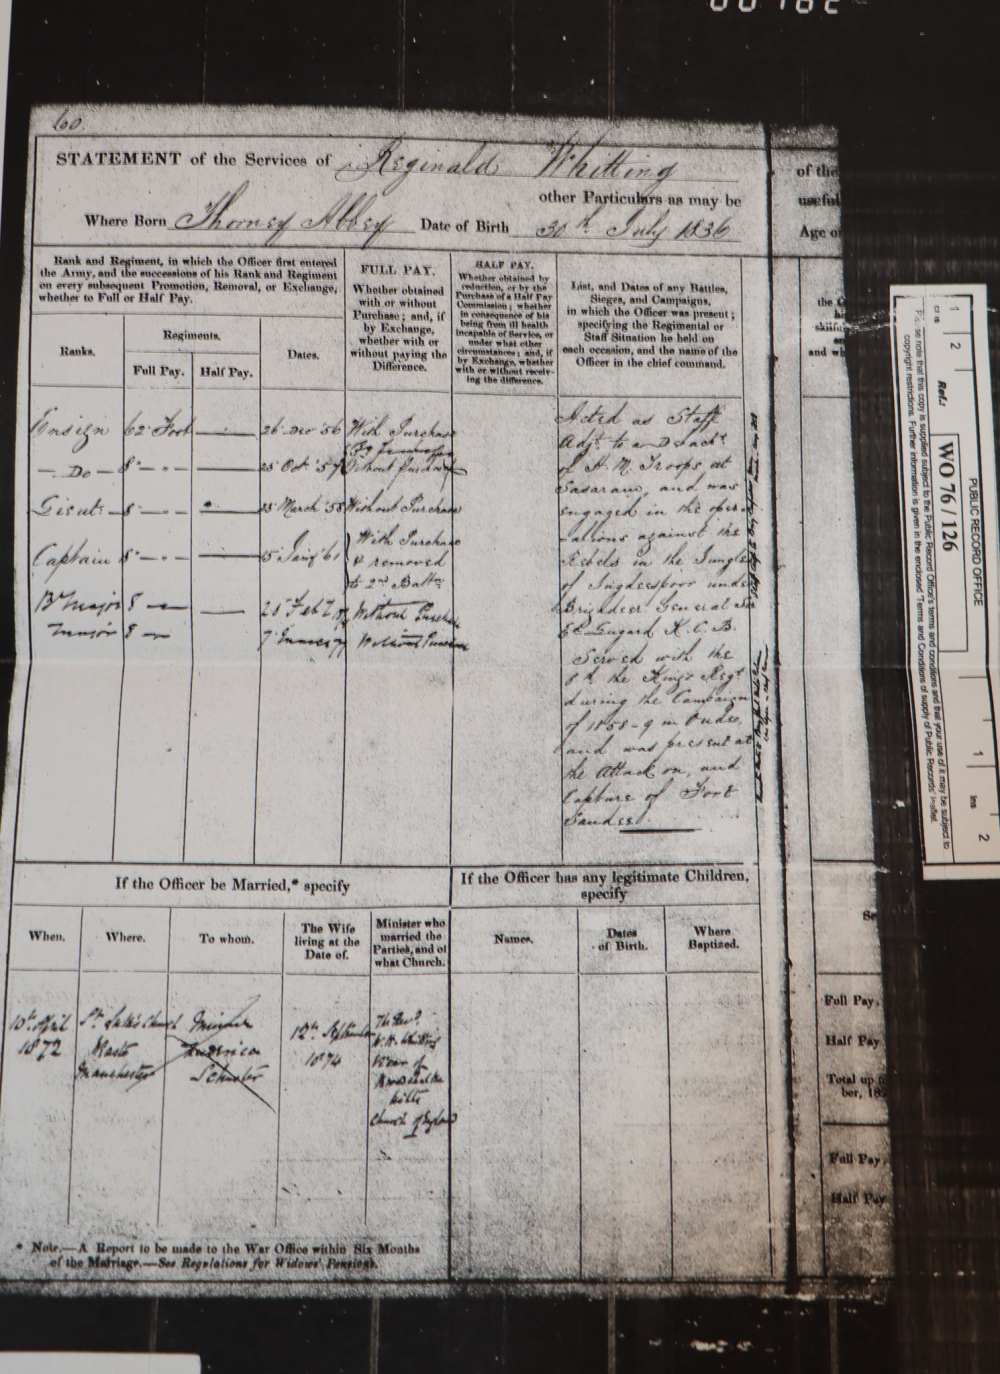 60.
STATEMENT of the Services of Reginald Whitting
other Particulars as may be
Where Born Thorney Abbey Date of Birth 30th July 1836
Rank and Regiment, in which the Officer first entered
the Army, and the successions of his Rank and Regiment
on every subsequent Promotion, Removal, or Exchange,
whether to Full or Half Pay.
Ranks.
Regiments.
Full Pay.
Half Pay.
Dates.
FULL PAY.
Whether obtained
with or without
Purchase; and, if
by Exchange,
whether with or
without paying the
Difference.
HALF PAY.
Whether obtained by
reduction, or by the
Purchase of a Half Pay
Commission; whether
in consequence of his
being from ill health
incapable of Service, or
under what other
circumstances; and, if
by Exchange, whether
with or without receiv-
ing the difference.
List, and Dates of any Battles,
Sieges, and Campaigns,
in which the Officer was present;
specifying the Regimental or
Staff Situation he held on
each occasion, and the name of the
Officer in the chief command.
Ensign 62 Foot 26 Dec '56 With Purchase
Do 8 23 Oct '57 Without Purchase
Lieut 8 23 March '58 Without Purchase
Captain 8 15 Jany 61 With Purchase
& removed
to 2nd Battn
Bt Major 8 Without Purchase
Major 8 Without Purchase
Acted as Staff
Adjt to a Detacht
of H. M. Troops at
Sasaram, and was
engaged in the oper-
-ations against the
Rebels in the Jungle
of Jugdespoor under
Brigadeer General Sir
Ed Lugard K. C. B.
Served with the
8th the King's Regt
during the Campaign
of 1858-9 in Oude,
and was present at
the Attack on, and
Capture of Fort
Sandee.
If the Officer be Married,* specify
When.
Where.
To whom.
The Wife
living at the
Date of.
Minister who
married the
Parties, and of
what Church.
10th April
1872
St. Luke's Church
Manchester
Schuster
12th September
1874
The Revd
Vicar of
Church of England
If the Officer has any legitimate Children,
specify
Names.
Dates
of Birth.
Where
Baptized.
* Note.—A Report to be made to the War Office within Six Months
of the Marriage.—See Regulations for Widows' Pensions.
of the
useful
Age of
the
and wh
Se
Full Pay.
Half Pay
Total up
ber, 18
Full Pay
Half Pay
PUBLIC RECORD OFFICE
Ref.:
WO 76 / 126
Please note that this copy is supplied subject to the Public Record Office's terms and conditions and that your use of it may be subject to
copyright restrictions. Further information is given in the enclosed 'Terms and Conditions of supply of Public Records' leaflet.
cms
1
2
1
ins
2